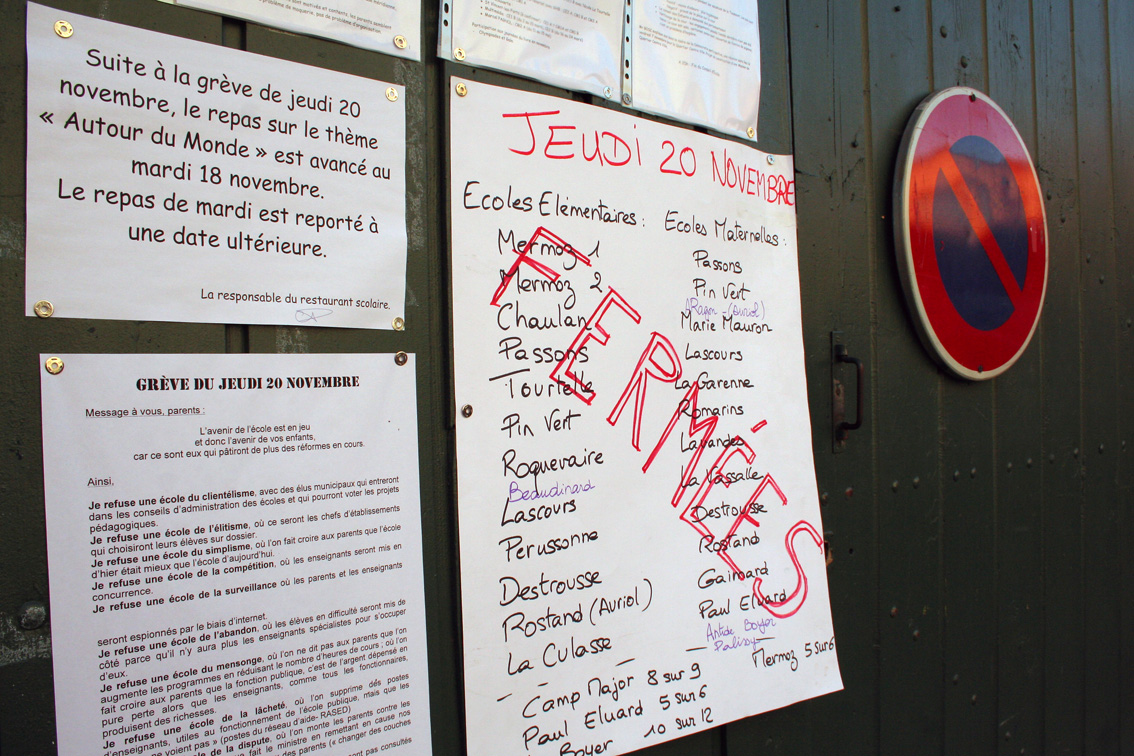 Suite à la grève de jeudi 20
novembre, le repas sur le thème
« Autour du Monde » est avancé au
mardi 18 novembre.
Le repas de mardi est reporté à
une date ultérieure.
La responsable du restaurant scolaire.
GRÈVE DU JEUDI 20 NOVEMBRE
Message à vous, parents :
L'avenir de l'école est en jeu
et donc l'avenir de vos enfants,
car ce sont eux qui pâtiront de plus des réformes en cours.
Ainsi,
Je refuse une école du clientélisme, avec des élus municipaux qui entreront
dans les conseils d'administration des écoles et qui pourront voter les projets
pédagogiques.
Je refuse une école de l'élitisme, où ce seront les chefs d'établissements
qui choisiront leurs élèves sur dossier.
Je refuse une école du simplisme, où l'on fait croire aux parents que l'école
d'hier était mieux que l'école d'aujourd'hui.
Je refuse une école de la compétition, où les enseignants seront mis en
concurrence.
Je refuse une école de la surveillance où les parents et les enseignants
seront espionnés par le biais d'internet.
Je refuse une école de l'abandon, où les élèves en difficulté seront mis de
côté parce qu'il n'y aura plus les enseignants spécialistes pour s'occuper
d'eux.
Je refuse une école du mensonge, où l'on ne dit pas aux parents que l'on
augmente les programmes en réduisant le nombre d'heures de cours ; où l'on
fait croire aux parents que la fonction publique, c'est de l'argent dépensé en
pure perte alors que les enseignants, comme tous les fonctionnaires,
produisent des richesses.
Je refuse une école de la lâcheté, où l'on supprime des postes
d'enseignants, utiles au fonctionnement de l'école publique, mais que les
ne voient pas » (postes du réseau d'aide- RASED)
de la dispute, où l'on monte les parents contre les
fait le ministre en remettant en cause nos
des parents (« changer des couches
sont pas consultés
JEUDI 20 NOVEMBRE
Ecoles Elémentaires :
Mermoz 1
Mermoz 2
Chaulan
Passons
Tourtelle
Pin Vert
Roquevaire
Beaudinard
Lascours
Perussonne
Destrousse
Rostand (Auriol)
La Culasse
Camp Major 8 sur 9
Paul Eluard 5 sur 6
Boyer 10 sur 12
Ecoles Maternelles :
Passons
Pin Vert
ARagon - (Auriol)
Marie Mauron
Lascours
La Garenne
Romarins
Lavandes
La Vassalle
Destrousse
Rostand
Gaimard
Paul Eluard
Antide Boyer
Palissy
Mermoz 5 sur 6
FERMÉES